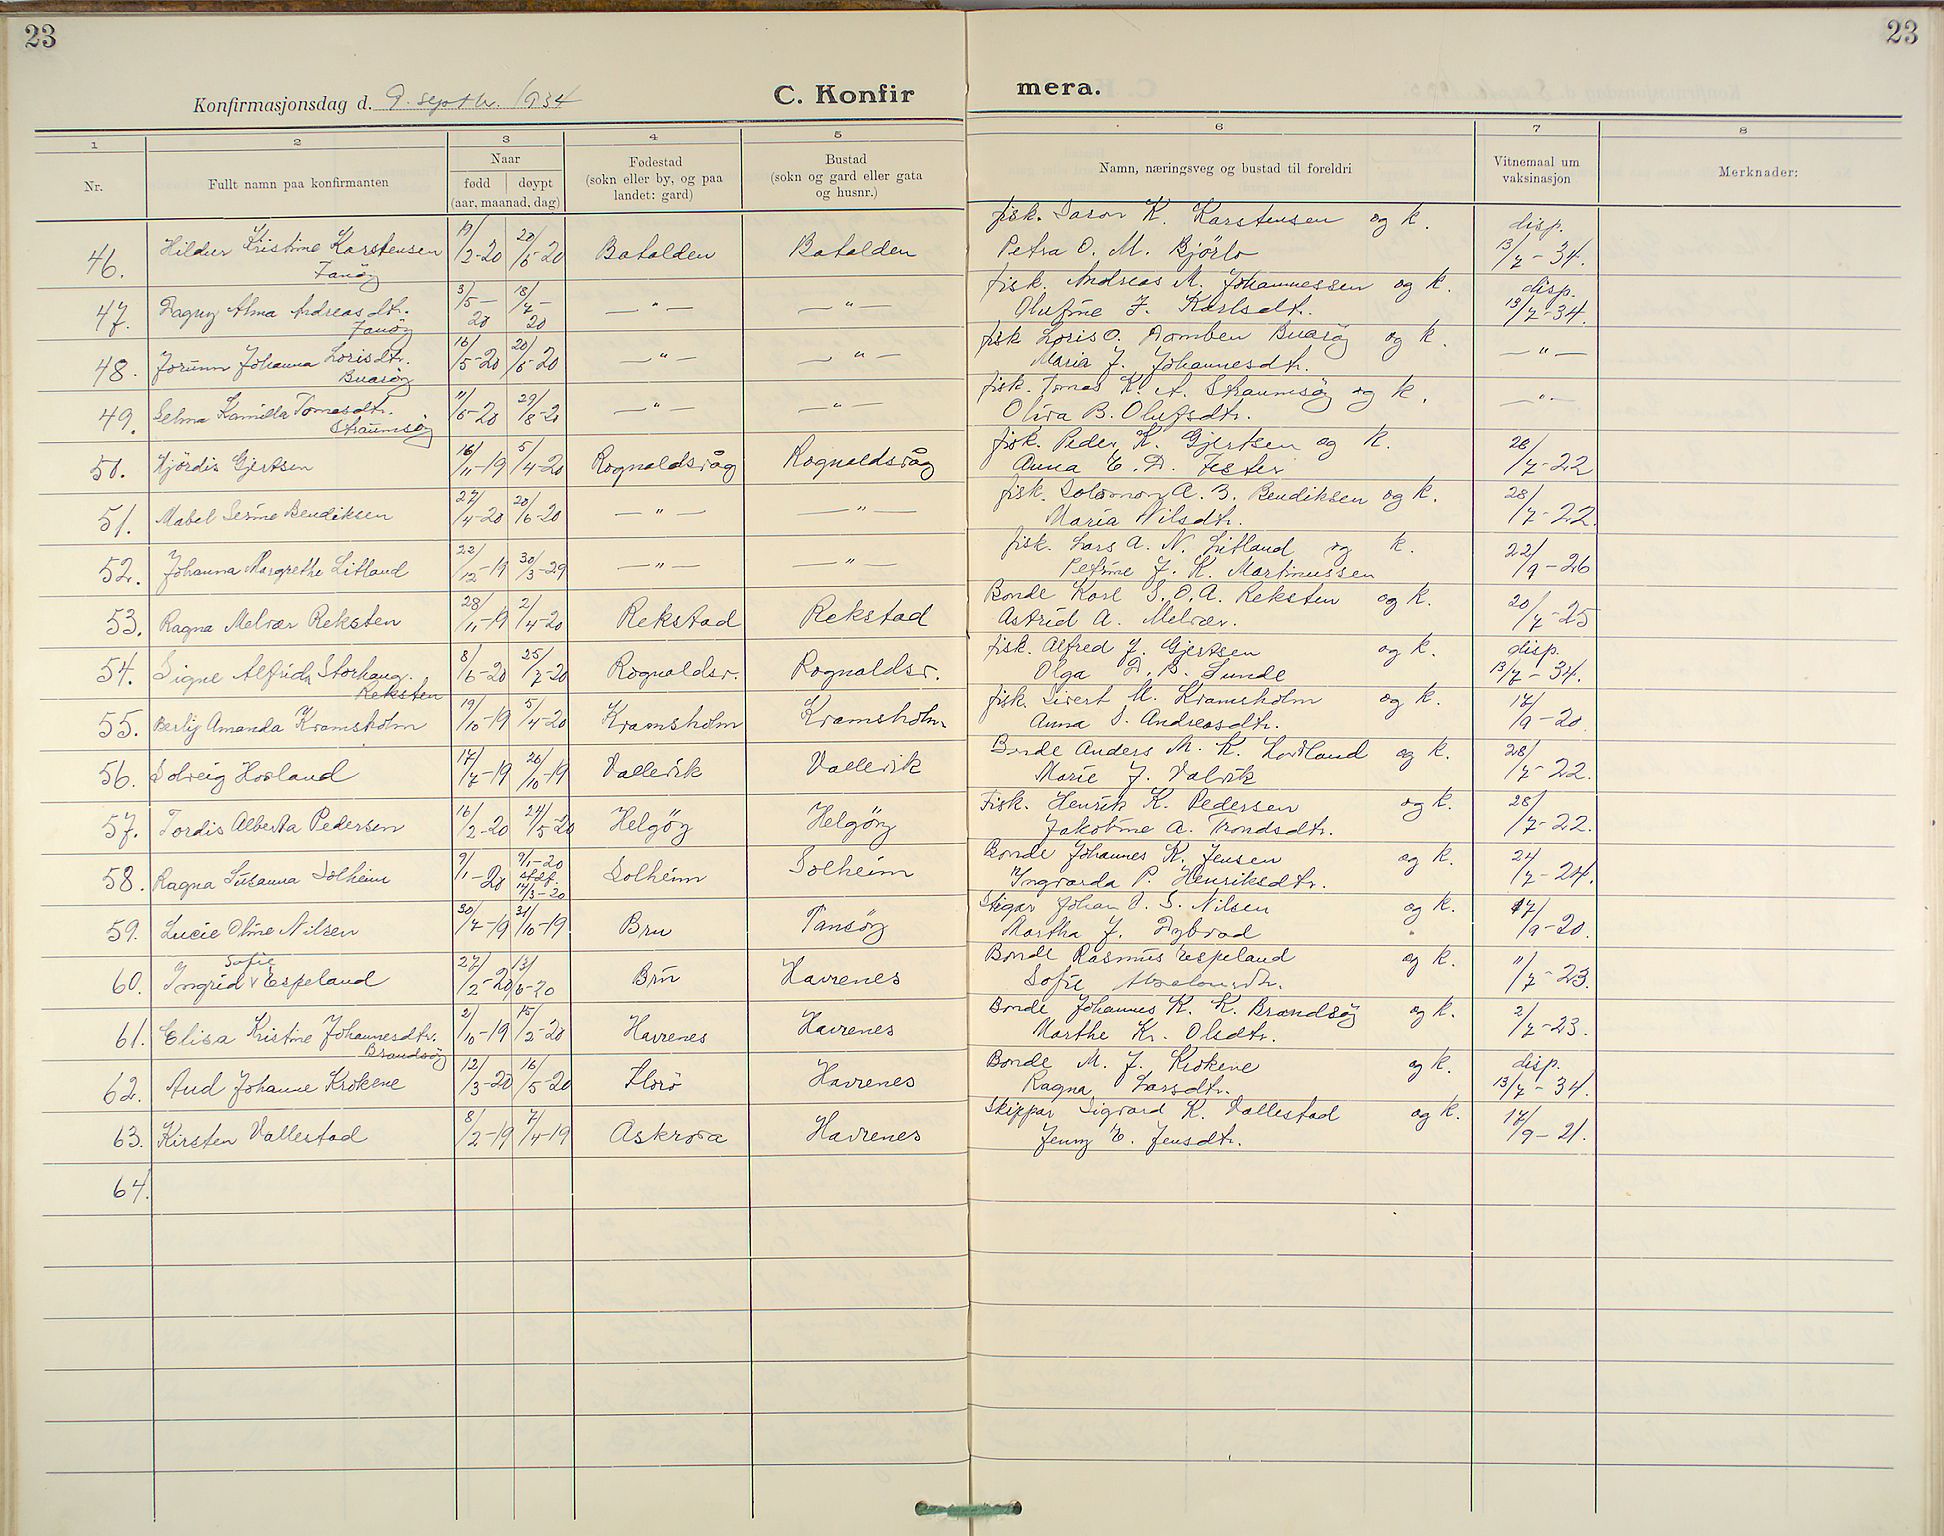 23
23
Konfirmasjonsdag d. 9. septbr. 1934
C. Konfir mera.
1 2 3 4 5 6 7 8
Nr.
Fullt namn paa konfirmanten
Naar
fødd døypt
(aar, maanad, dag)
Fødestad
(sokn eller by, og paa
landet: gard)
Bustad
(sokn og gard eller gata
og husnr.)
Namn, næringsveg og bustad til foreldri
Vitnemaal um
vaksinasjon
Merknader:
46. Hildur Kristine Karstensen 19/2-20 20/6-20 Batalden Batalden fisk. Jason K. Karstensen og k. disp.
Fanöy Petra O. M. Björlo 13/7-34.
47. Dagny Alma Andreasdtr. 3/5-20 18/7-20 —"— —"— fisk. Andreas M. Johannessen og k. disp.
Fanöy Olufine J. Karlsdtr. 13/7-34.
48. Jorunn Johanna Lorisdtr. 16/5-20 20/6-20 —"— —"— fisk Loris O. Domben Buaröy og k. —"—
Buaröy Maria J. Johannesdtr.
49. Selma Kamilla Tomasdtr. 11/6-20 29/8-20 —"— —"— fisk. Tomas K. A. Straumsöy og k. —"—
Straumsöy Oliva B. Olufsdtr.
50. Hjördis Gjertsen 16/11-19 5/4-20 Rognaldsvåg Rognaldsvåg fisk. Peder K. Gjertsen og k. 28/7-22
Anna E. D. Fester
51. Mabel Serine Bendiksen 27/4-20 20/6-20 —"— —"— fisk. Solomon A. B. Bendiksen og k. 28/7-22.
Maria Nilsdtr.
52. Johanna Margrethe Litland 22/12-19 30/3-29 —"— —" fisk. Lars A. N. Litland og k. 22/9-26
Petrine J. K. Martinussen
53. Ragna Melvær Reksten 28/11-19 2/4-20 Rekstad Rekstad Bonde Karl S. O. A. Reksten og k. 20/7-25
Astrid A. Melvær.
54. Signe Alfrida Storhaug. 8/6-20 25/7-20 Rognaldsv. Rognaldsv. fisk. Alfred J. Gjertsen og k. disp.
Reksten Olga D. B. Sunde 13/7-34.
55. Berly Amanda Kramsholm 19/10-19 5/4-20 Kramsholm Kramsholm fisk. Sivert M. Kramsholm og k. 17/9-20
Anna S. Andreasdtr.
56. Solveig Hovland 17/7-19 26/10-19 Vallevik Vallevik Bonde Anders M. K. Hovland og k. 28/7-22.
Marie J. Valvik
57. Tordis Alberta Pedersen 16/2-20 24/5-20 Helgöy Helgöy Fisk. Henrik K. Pedersen og k. 28/7-22.
Jakobine A. Trondsdtr.
58. Ragna Susanna Solheim 9/1-20 9/1-20 stdf. 14/3-20 Solheim Solheim Bonde Johannes K. Jensen og k. 24/7-24.
Yngvarda P. Henriksdtr.
59. Lucie Oline Nilsen 30/7-19 31/10-19 Bru Tansöy Skipar Johan D. S. Nilsen og k. 17/9-20.
Martha J. Dybvad
60. Ingrid Sofie Espeland 27/2-20 13/6-20 Bru Havrenes Bonde Rasmus Espeland og k. 11/7-23.
Sofie
61. Elisa Kristine Johannesdtr. 2/10-19 15/2-20 Havrenes Havrenes Bonde Johannes K. K. Brandsöy og k. 2/7-23.
Brandsöy Marthe Kr. Olsdtr.
62. Aud Johanne Krokene 12/3-20 16/5-20 Florö Havrenes Bonde M. J. Krokene og k. disp.
Ragna Larsdtr. 13/7-34.
63. Kirsten Vallestad 8/2-19 7/4-19 Askrova Havrenes Skippar Sigvard K. Vallestad og k. 17/9-21.
Jenny E. Jensdtr.
64.